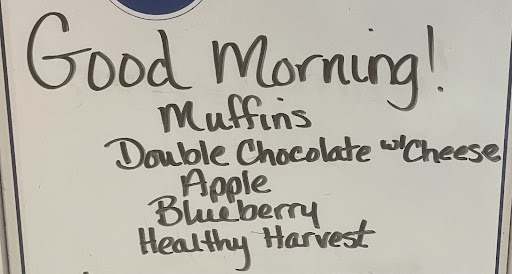 Good Morning!
Muffins
Double Chocolate w/ Cheese
Apple
Blueberry
Healthy Harvest